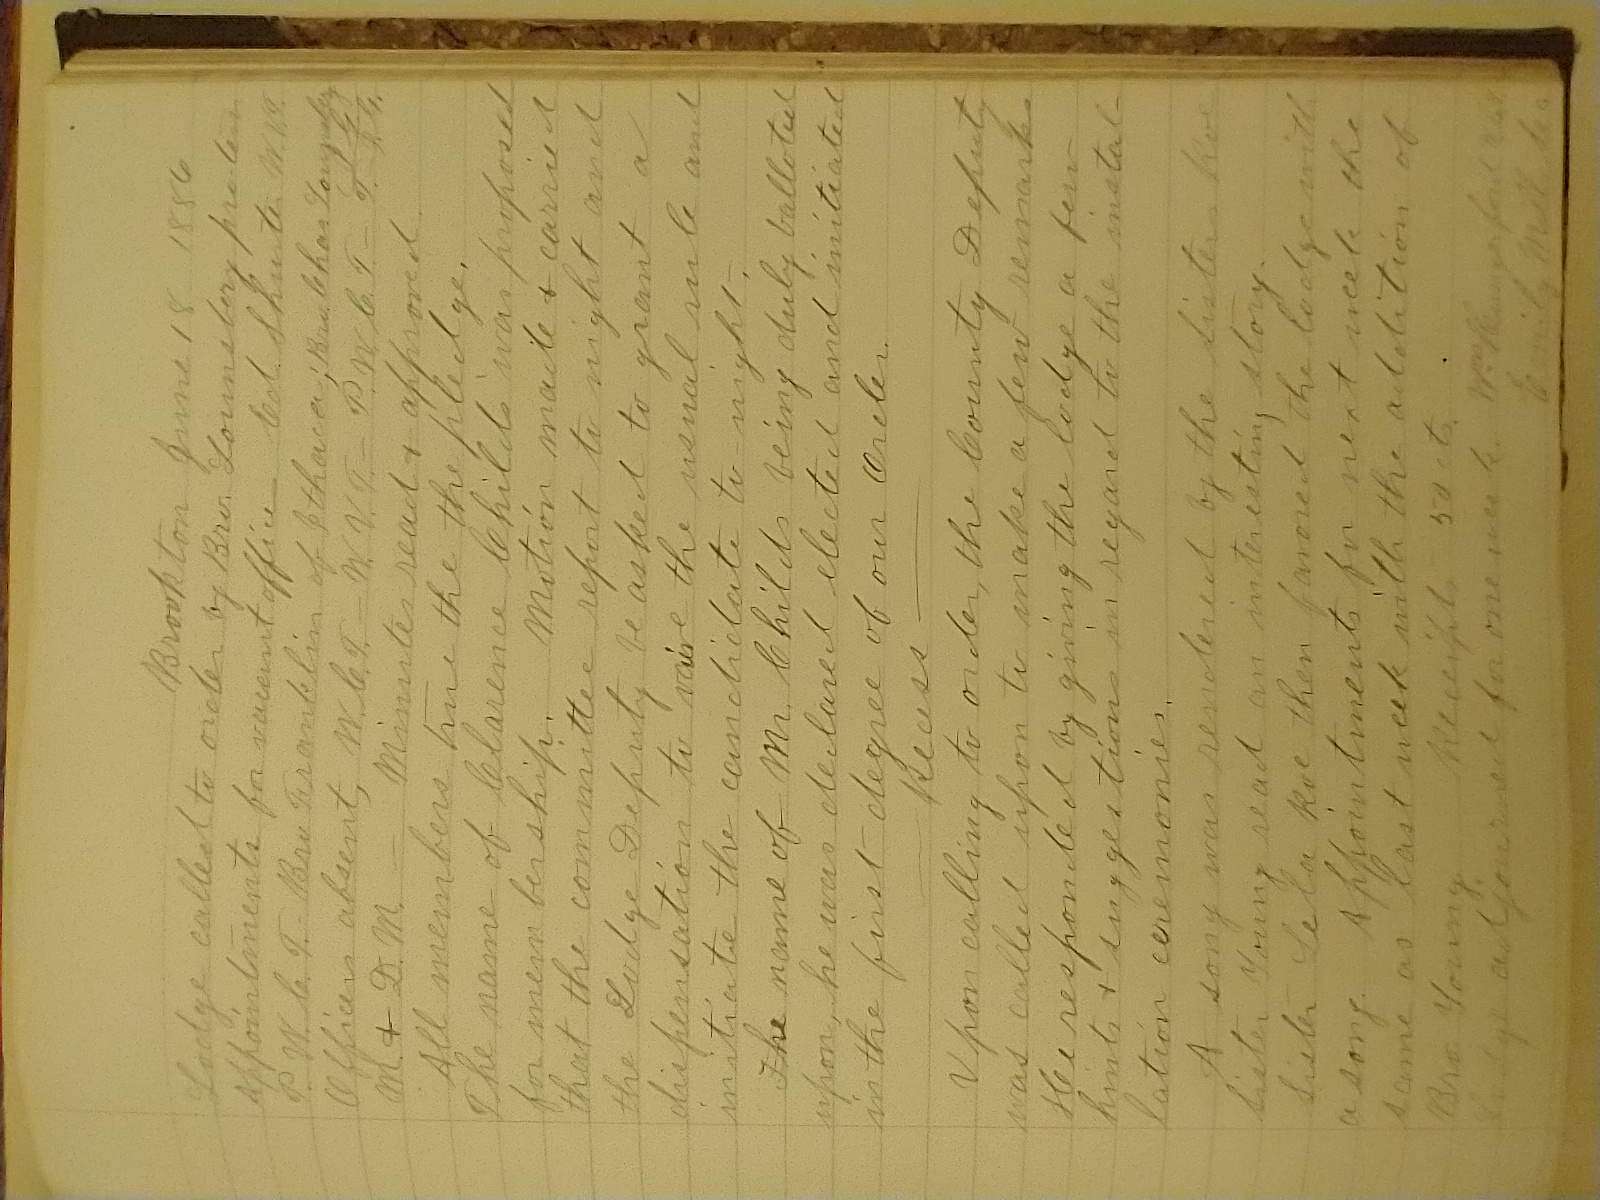 Brookton June 18 1886
Lodge called to order by Bro. Lounsbery pro-tem
Appointments for vacant office Ed. Shurter W.V.T.
P. W. C. T. - Bro Franklin of Ithaca; Bro. Chas Lounsbery
Officers absent, W.C.T. - W.V.T. - P.W.C.T - T.
M. + D.M. — Minutes read + approved.
All members true the the pledge.
The name of Clarence Childs was proposed
for membership. Motion made + carried
that the committee report to night and
the Lodge Deputy be asked to grant a
dispensation to vaive the usual rule and
initiate the candidate to-night.
The name of Mr. Childs being duly balloted
upon, he was declared elected and initiated
in the first degree of our Order.
— Recess —
Upon calling to order, the County Deputy
was called upon to make a few remarks
He responded by giving the lodge a few
hints + suggestions in regard to the instal-
lation ceremonies.
A song was rendered by the Sisters Roe
Sister Young read an interesting story.
Sister Lela Roe then favored the lodge with
a song. Appointments for next week the
same as last week with the addition of
Bro. Young Receipts 50 cts.
Lodge adjourned for one week. Wm Hungerford
Emily Mills Sec